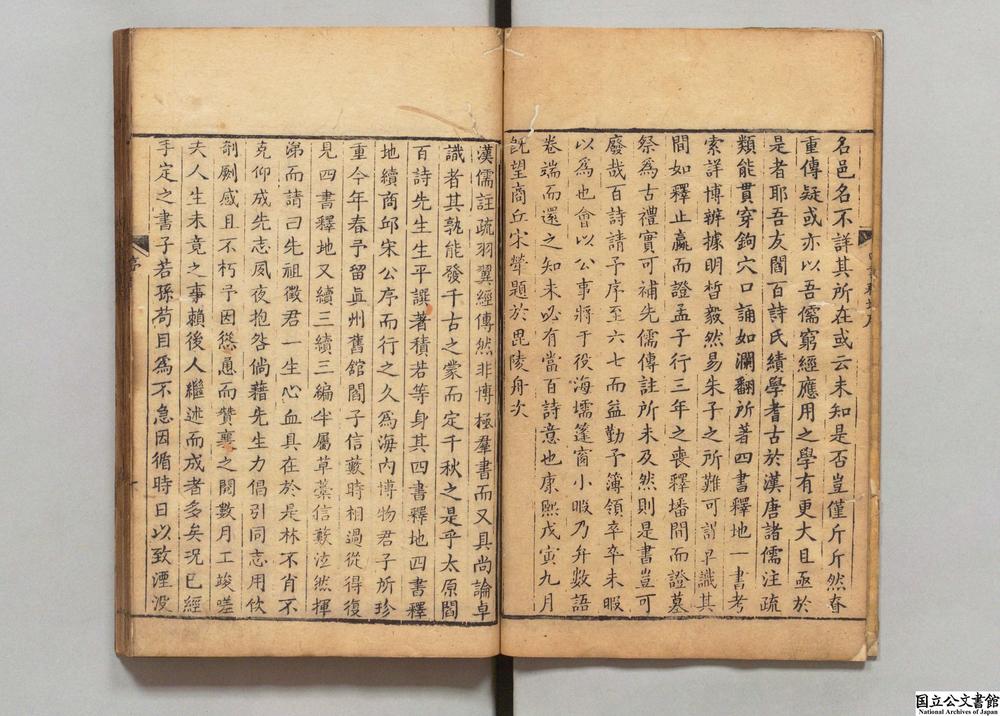 名邑名不詳其所在或云未知是否豈僅斤斤然存
重傳疑或亦以吾儒窮經應用之學有更大且亟於
是者耶吾友閻百詩氏績學耆古於漢唐諸儒注疏
類能貫穿鉤穴口誦如瀾翻所著四書釋地一書考
索詳博辨據明晳毅然易朱子之所難可謂卓識其
間如釋止嬴而證孟子行三年之喪釋墦間而證墓
祭為古禮實可補先儒傳註所未及然則是書豈可
廢哉百詩請予序至六七而益勤予簿領卒卒未暇
以為也會以公事將于役海壖篷窗小暇乃弁數語
卷端而還之知未必有當百詩意也康熙戊寅九月
既望商丘宋犖題於毘陵舟次
漢儒註疏羽翼經傳然非博極羣書而又具尚論卓
識者其孰能發千古之蒙而定千秋之是乎太原閻
百詩先生生平譔著積若等身其四書釋地四書釋
地續商邱宋公序而行之久為海內博物君子所珍
重今年春予留眞州舊館閻子信藪時相過從得復
見四書釋地又續三續三編半屬草藁信藪泣然揮
涕而請曰先祖徵君一生心血具在於是林不肖不
克仰成先志夙夜抱咎倘藉先生力倡引同志用佽
剞劂感且不朽予因慫恿而贊襄之閱數月工竣嗟
夫人生未竟之事賴後人繼述而成者多矣況已經
手定之書子若孫苟目為不急因循時日以致湮沒
序
国立公文書館
National Archives of Japan